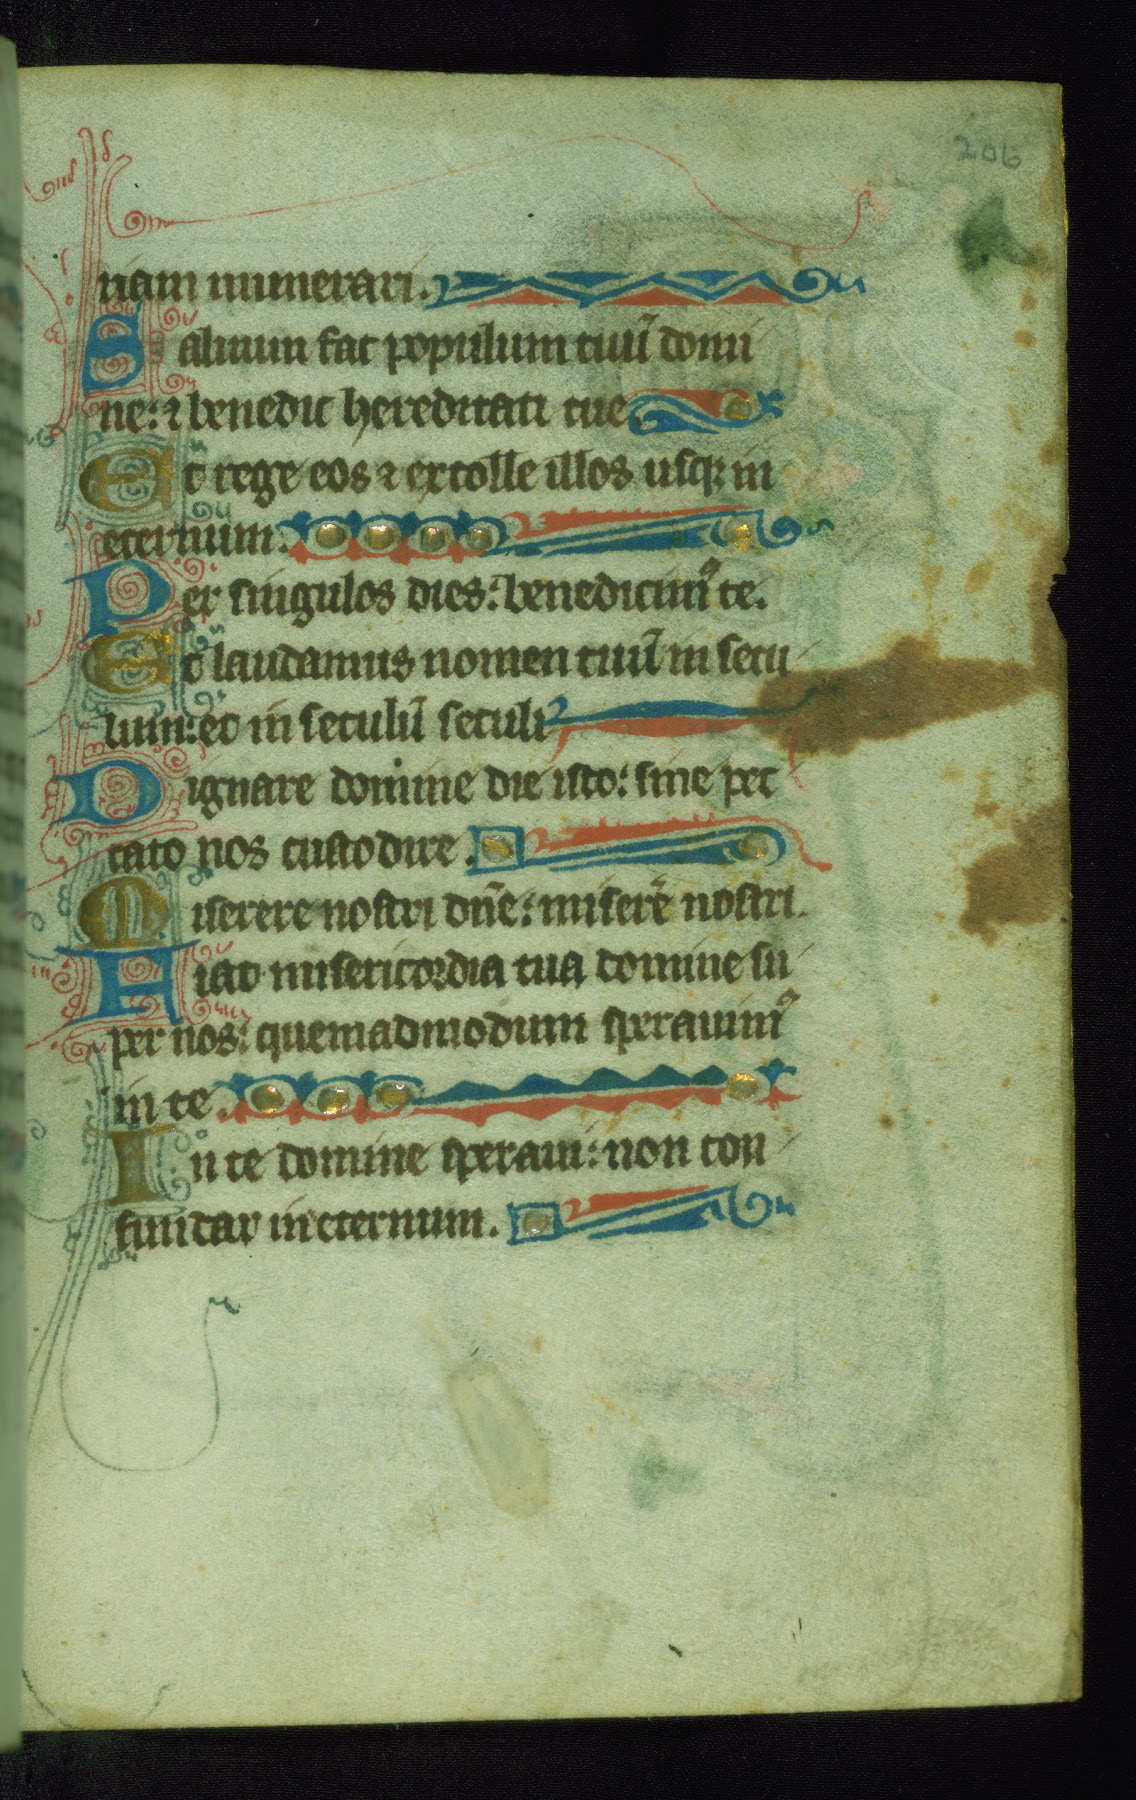 206
riam munerari.
Saluum fac populum tuū domi
ne: ⁊ benedic hereditati tue
Et rege eos ⁊ extolle illos usq; in
eternum.
Per singulos dies: benedicimꝰ te.
Et laudamus nomen tuū in secu
lum: et in seculū seculi
Dignare domine die isto: sine pec
cato nos custodire.
Miserere nostri dn̄e: miserē nostri.
Fiat misericordia tua domine su
per nos: quemadmodum sperauimꝰ
in te.
In te domine speraui: non con
fundar in eternum.